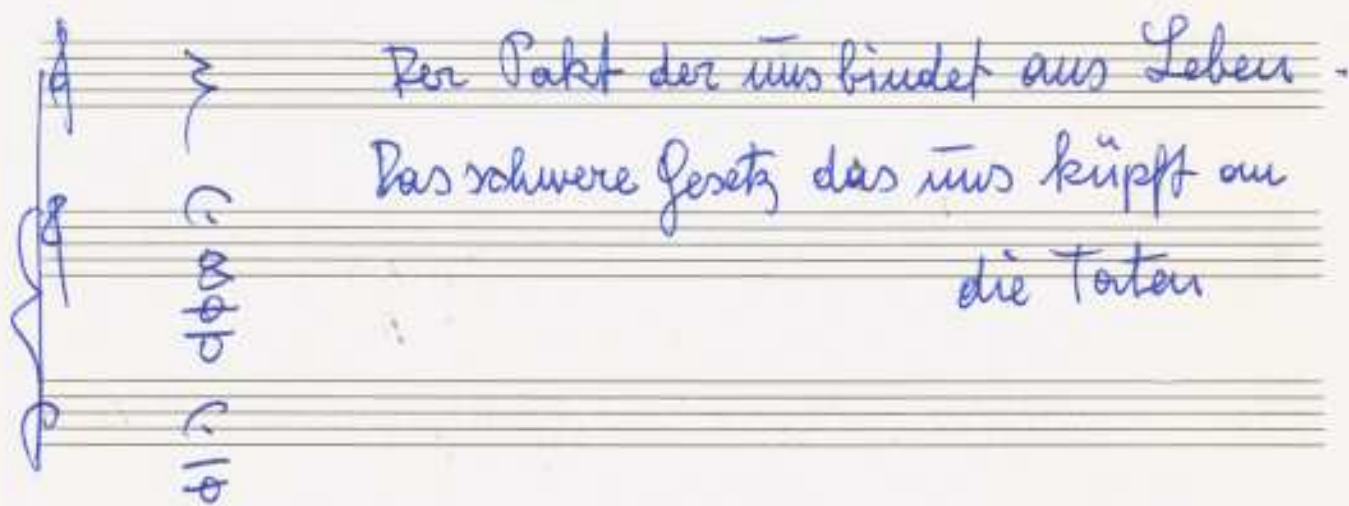 Der Pakt der uns bindet ans Leben -
Das schwere Gesetz das uns küpft an
die Toten